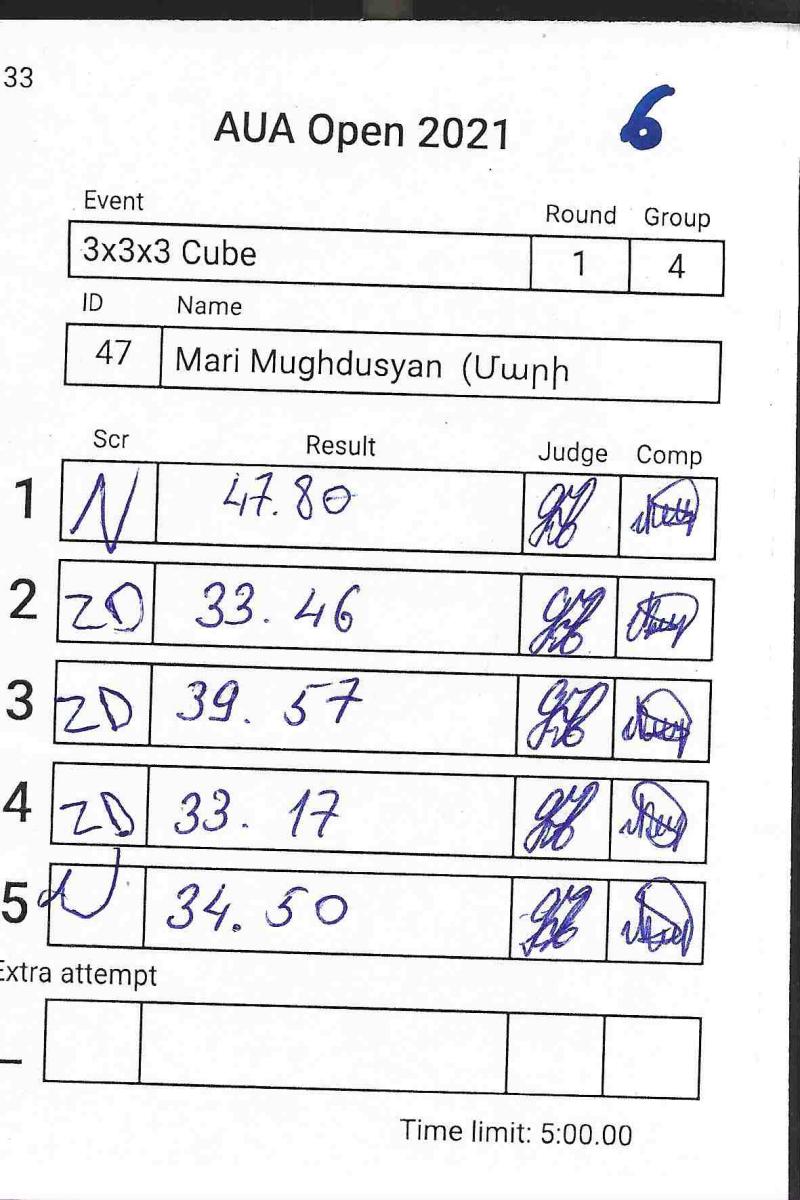 33
AUA Open 2021 6
Event Round Group
3x3x3 Cube 1 4
ID Name
47 Mari Mughdusyan (Մարի
Scr Result Judge Comp
1 N 47.80
2 ZD 33.46
3 ZD 39.57
4 ZD 33.17
5 34.50
Extra attempt
_
Time limit: 5:00.00